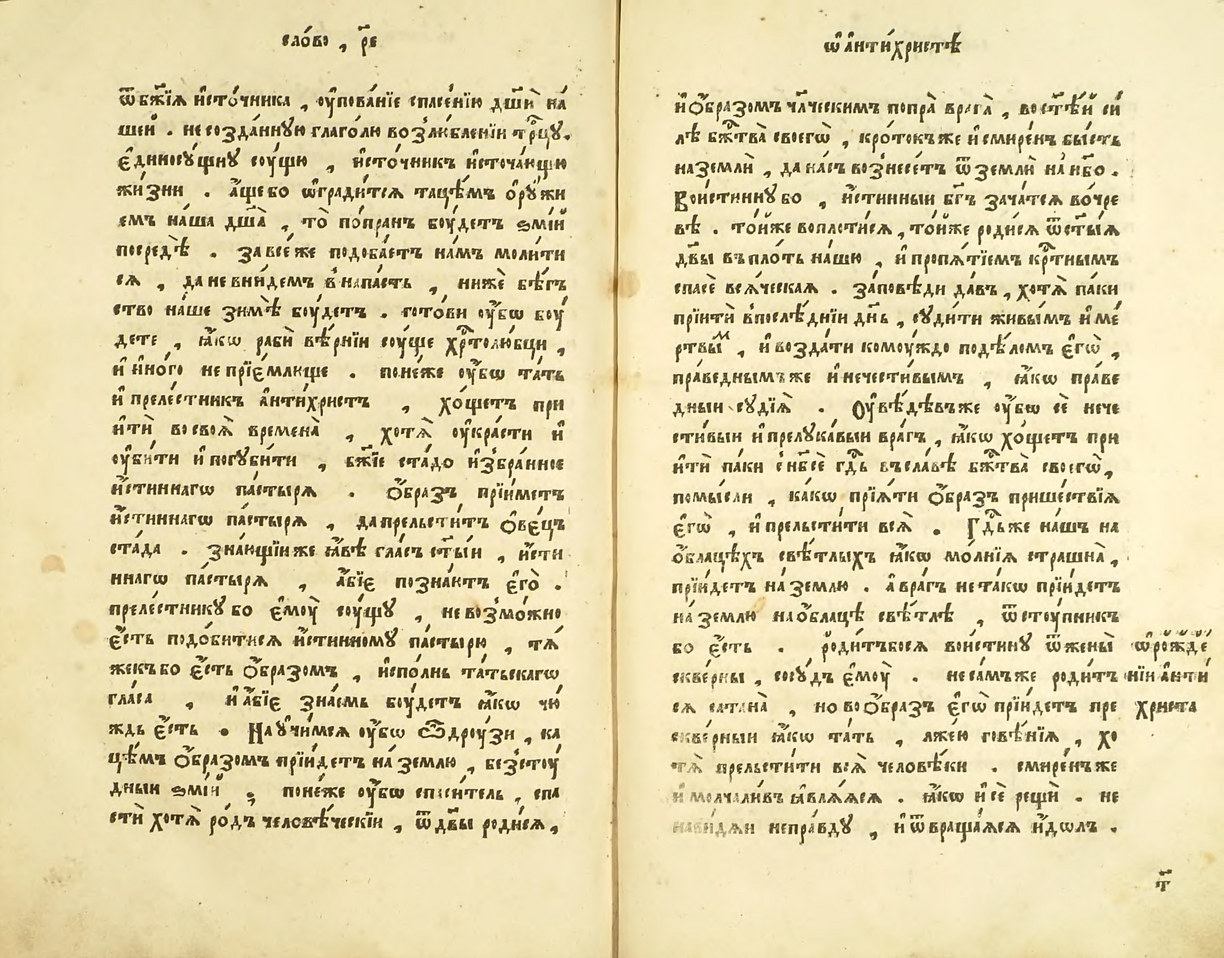 сло́во , р҃е
ѿ бж҃їѧ и҆сто́чника , ᲂу҆пова́нїе спасе́нїю дш҃ѝ на́
шеи . несозда́ннꙋю глаго́ли возлю́бленїи трⷪ҇цꙋ .
є҆диносꙋ́щнꙋ сꙋ́щꙋ , и҆сто́чникъ и҆сточа́ющїю
жи́зни . а҆́ще бо ѡ҆гради́тсѧ таце́мъ ѻ҆рꙋ́жи
емъ на́ша дш҃а̀ , то̀ по́пранъ бꙋ́детъ ѕмі́й
посредѣ̀ . за все́ же подоба́етъ на́мъ моли́ти
сѧ , да не вни́демъ в̾ напа́сть , нижѐ бѣ́гъ
ство на́ше зимѣ̀ бꙋ́детъ . гото́ви ᲂу҆́бѡ бꙋ́
дете , ꙗ҆́кѡ рабѝ вѣ́рнїи сꙋ́ще хрⷭ҇толю́бцы ,
и҆ и҆но́го не прїе́млюще . поне́же ᲂу҆́бѡ та́ть
и҆ преле́стникъ а҆нти́христъ , хо́щетъ при
и҆тѝ во своѧ̀ времена̀ , хотѧ̀ ᲂу҆кра́сти и҆
ᲂу҆би́ти и҆ погꙋби́ти , бж҃їе ста́до и҆збра́нное
и҆́стиннагѡ па́стырѧ . ѻ҆́бразъ прїи́метъ
и҆́стиннагѡ па́стырѧ , да прельсти́тъ ѻ҆ве́цъ
ста́да . зна́ющїи же ꙗ҆́вѣ гла́съ ст҃ы́и , и҆́сти
ннагѡ па́стырѧ , а҆́бїе позна́ютъ є҆го̀ .
преле́стникꙋ бо є҆мꙋ̀ сꙋ́щꙋ , невозмо́жно
є҆́сть подо́битисѧ и҆́стинномꙋ па́стырю , тѧ́
жекъ бо є҆́сть ѻ҆́бразомъ , и҆спо́лнь та́тьскагѡ
гла́са , и҆ а҆́бїе зна́емь бꙋ́детъ ꙗ҆́кѡ чю́
ждь є҆́сть . Наꙋчи́мсѧ ᲂу҆́бѡ ѽ дрꙋ́зи , ка
цѣ́мъ ѻ҆́бразомъ прїи́детъ на́ землю , безстꙋ́
дныи ѕмі́и ; поне́же ᲂу҆́бѡ сп҃си́тель , спа
сти́ хотѧ̀ ро́дъ человѣ́ческїи , ѿ дв҃ы роди́сѧ ,
ѡ҆ а҆нти́христѣ
и҆ ѻ҆́бразомъ чл҃ческимъ попра̀ врага̀ , во ст҃ѣ́й си́
лѣ бж҃тва̀ своегѡ̀ , кро́токъ же и҆ смире́нъ бы́сть
на землѝ , да на́съ вознесе́тъ ѿ землѝ на́ нб҃о .
Вои́стиннꙋ бо , и҆́стинныи бг҃ъ зача́тсѧ во́ чре
вѣ . то́й же воплоти́сѧ , то́й же роди́сѧ ѿ ст҃ы́ѧ
дв҃ы въ пло́ть на́шю , и҆ пропѧ́тїемъ крⷭ҇тнымъ
спасѐ всѧ́ческаѧ . за́повѣди да́въ , хотѧ̀ па́ки
прїитѝ в̾ послѣ́днїи дн҃ь , сꙋди́ти живы́мъ и҆ ме́
ртвы́м , и҆ возда́ти комꙋ́ждо по дѣ́ломъ є҆гѡ̀ ,
пра́веднымъ же и҆ нечести́вымъ , ꙗ҆́кѡ пра́ве
дныи сꙋдїѧ̀ . Оу҆вѣ́дѣвъ же ᲂу҆́бѡ сѐ нече
сти́выи и҆ прелꙋка́выи вра́гъ , ꙗ҆́кѡ хо́щетъ прі
и҆тѝ па́ки с̾ нб҃сѐ гд҇ь въ сла́вѣ бж҃тва̀ своегѡ̀ ,
помы́сли , ка́кѡ прїѧ́ти ѻ҆́бразъ прише́ствїѧ
є҆гѡ̀ , и҆ прельсти́ти всѧ̀ . Гд҇ь же на́шъ на
ѻ҆́блацѣхъ свѣ́тлыхъ ꙗ҆́кѡ мо́лнїѧ стра́шна ,
прїи́детъ на́ землю . а҆ вра́гъ не та́кѡ прїи́детъ
на́ землю на ѻ҆́блацѣ свѣ́тлѣ , ѿстꙋ́пникъ
бо є҆́сть . роди́тъ бо сѧ вои́стинꙋ ѿ жены̀
скве́рны , сосꙋ́дъ є҆мꙋ̀ . не са́мъ же роди́т
сѧ сатана̀ , но во ѻ҆́бразъ є҆гѡ̀ прїи́детъ пре
скве́рныи ꙗ҆́кѡ та́ть , лже́ю говѣ́нїѧ , хо
тѧ̀ прельсти́ти всѧ̀ человѣ́ки . смире́нъ же
и҆ молчали́въ ꙗ҆влѧ́ѧсѧ . ꙗ҆́кѡ и҆ сѐ рещѝ . не
нави́дѧи непра́вдꙋ , и҆ ѿвраща́ѧсѧ и҆́дѡлъ .
ѡ҆ рожде́
нїи а҆нти́
христа
т҃